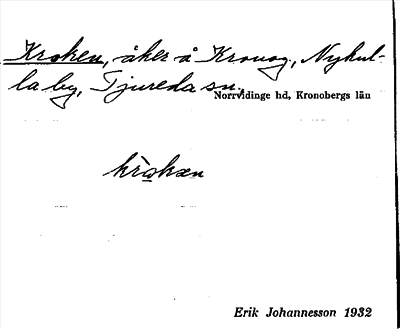 Kroken, åker å Kronog., Nykul-
la by, Tjureda sn.,
Norrvidinge hd, Kronobergs län
kròkæn
Erik Johannesson 1932